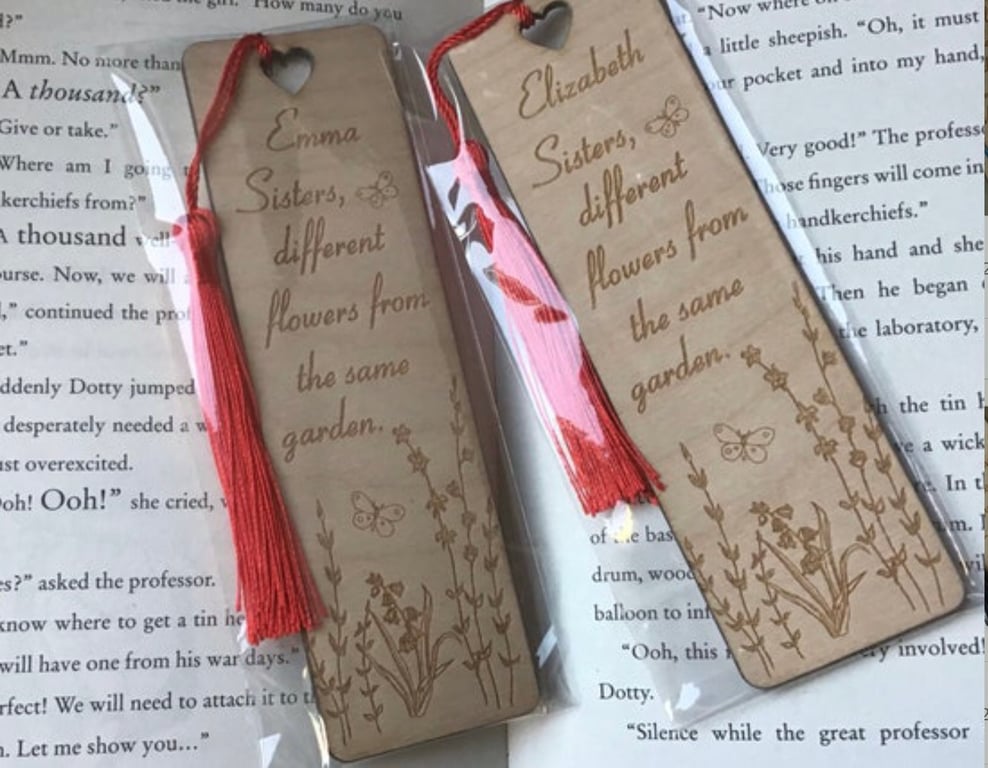 Emma
Sisters,
different
flowers from
the same
garden.
Elizabeth
Sisters,
different
flowers from
the same
garden.
"How many do you
?"
Mmm. No more than
A thousand?"
Give or take."
Where am I going
kerchiefs from?"
A thousand well
urse. Now, we will
," continued the
et."
ddenly Dotty jumped
desperately needed a
st overexcited.
oh! Ooh!" she cried,
es?" asked the professor.
know where to get a tin
will have one from his war days."
rfect! We will need to attach it to
n. Let me show you..."
"Now where
a little sheepish. "Oh, it must
ur pocket and into my hand,
Very good!" The
hose fingers will come in
handkerchiefs."
his hand and she
Then he began
the laboratory,
the tin
a wick
In
of the
drum,
balloon to
"Ooh, this
involved!
Dotty.
"Silence while the great professor